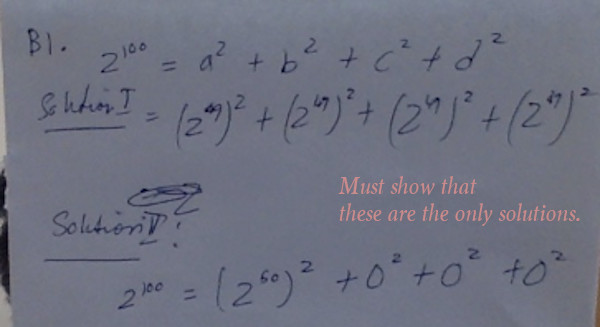 B1.
2¹⁰⁰ = a² + b² + c² + d²
Solution I = (2⁴⁹)² + (2⁴⁹)² + (2⁴⁹)² + (2⁴⁹)²
Must show that
these are the only solutions.
Solution II :
2¹⁰⁰ = (2⁵⁰)² + 0² + 0² + 0²